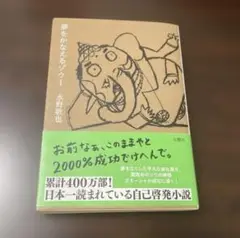 夢をかなえるゾウ1
水野敬也
文響社
お前なぁ、このままやと
2000%成功でけへんで。
累計400万部!
日本一読まれている自己啓発小説